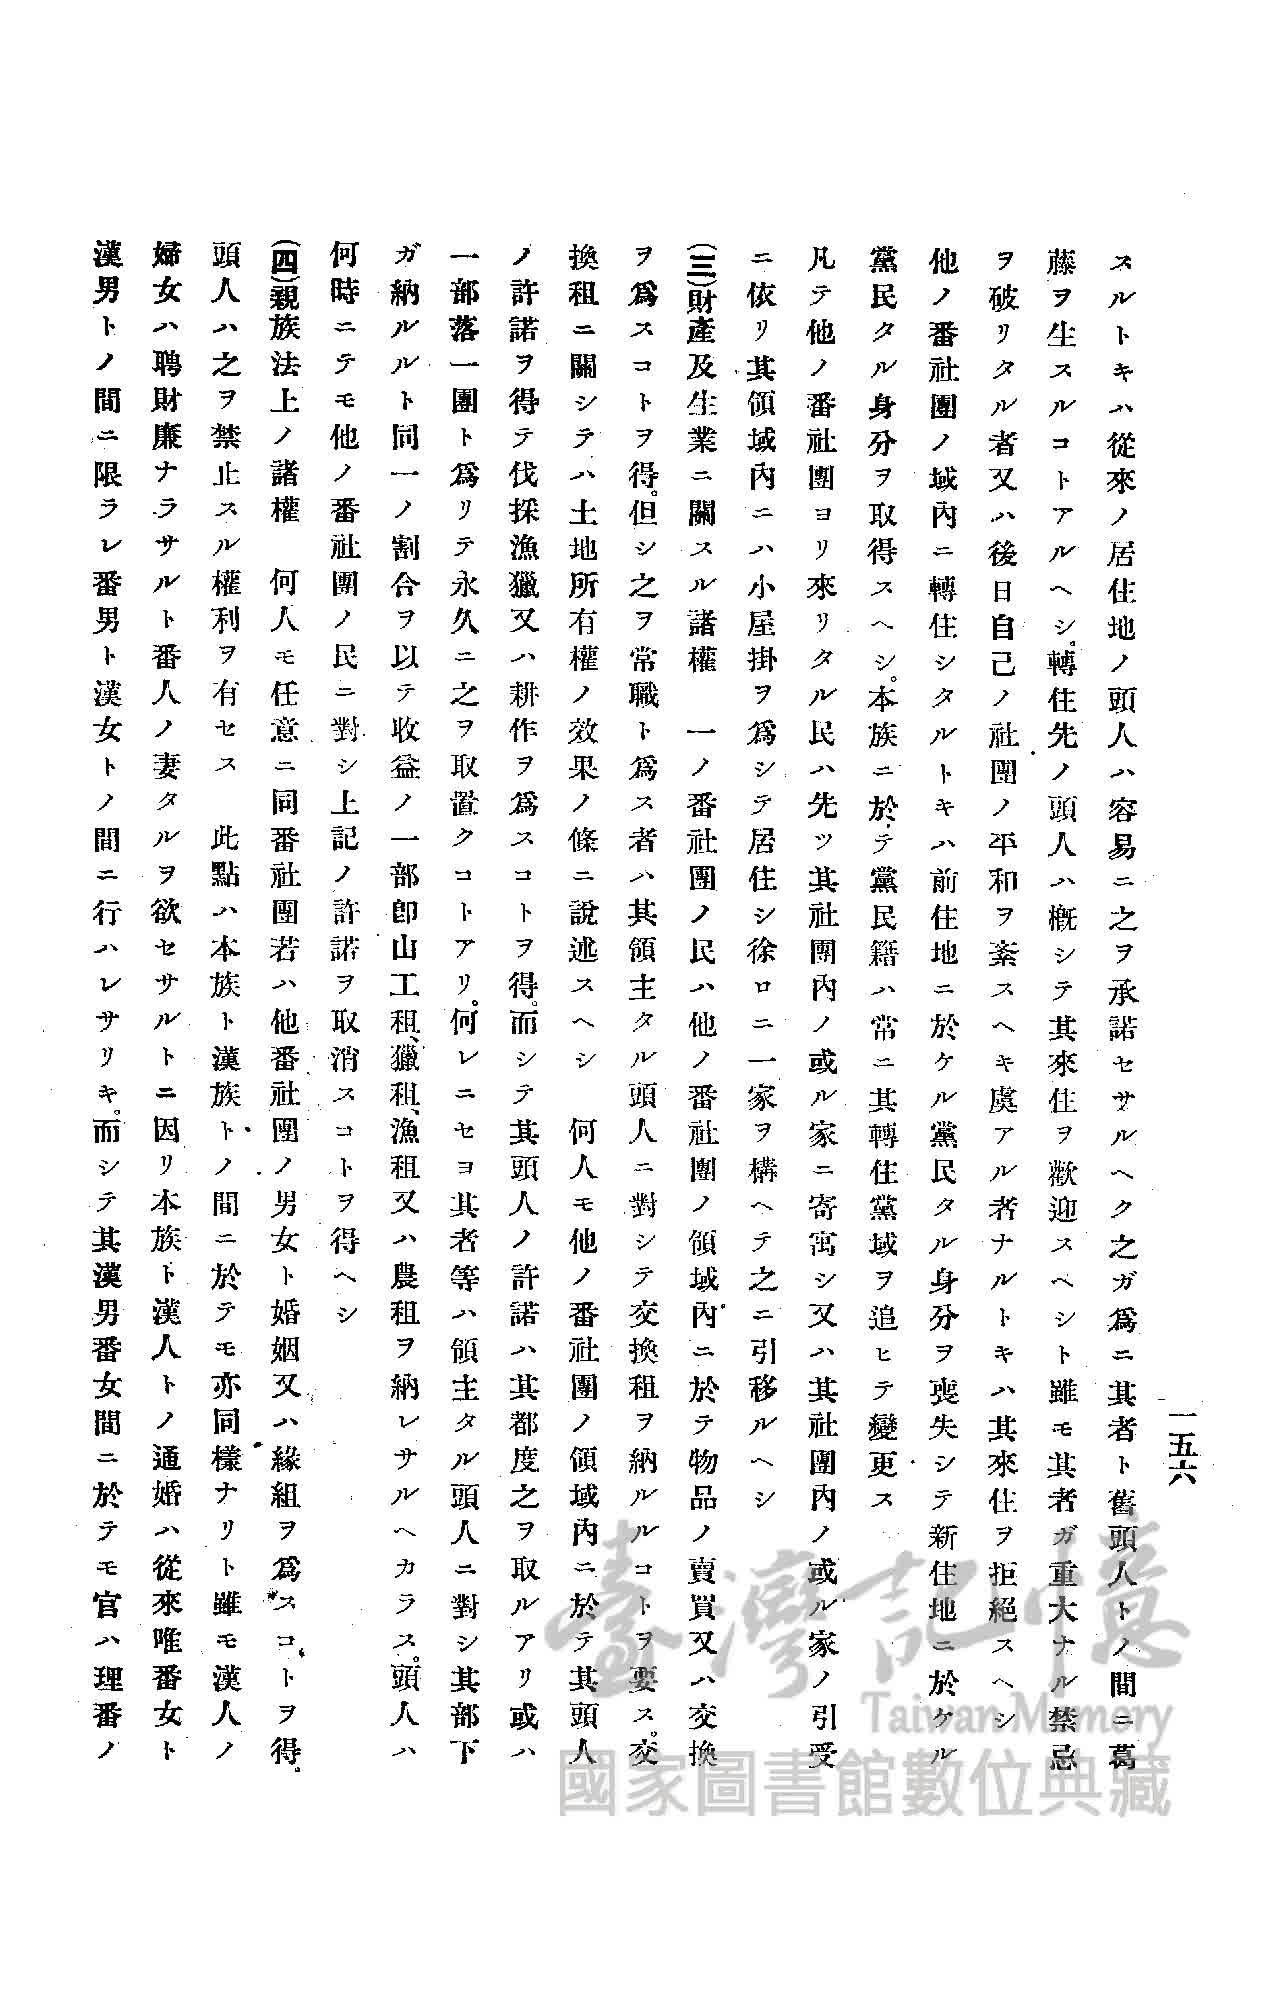 一五六
スルトキハ從來ノ居住地ノ頭人ハ容易ニ之ヲ承諾セサルヘク之ガ爲ニ其者ト舊頭人トノ間ニ葛
藤ヲ生スルコトアルヘシ。轉住先ノ頭人ハ槪シテ其來住ヲ歡迎スヘシト雖モ其者ガ重大ナル禁忌
ヲ破リタル者又ハ後日自己ノ社團ノ平和ヲ紊スヘキ虞アル者ナルトキハ其來住ヲ拒絕スヘシ
他ノ番社團ノ域內ニ轉住シタルトキハ前住地ニ於ケル黨民タル身分ヲ喪失シテ新住地ニ於ケル
黨民タル身分ヲ取得スヘシ。本族ニ於テ黨民籍ハ常ニ其轉住黨域ヲ追ヒテ變更ス
凡テ他ノ番社團ヨリ來リタル民ハ先ツ其社團內ノ或ル家ニ寄寓シ又ハ其社團內ノ或ル家ノ引受
ニ依リ其領域內ニハ小屋掛ヲ爲シテ居住シ徐ロニ一家ヲ構ヘテ之ニ引移ルヘシ
(三)財產及生業ニ關スル諸權　一ノ番社團ノ民ハ他ノ番社團ノ領域內ニ於テ物品ノ賣買又ハ交換
ヲ爲スコトヲ得。但シ之ヲ常職ト爲ス者ハ其領主タル頭人ニ對シテ交換租ヲ納ルルコトヲ要ス。交
換租ニ關シテハ土地所有權ノ效果ノ條ニ說述スヘシ　何人モ他ノ番社團ノ領域內ニ於テ其頭人
ノ許諾ヲ得テ伐採漁獵又ハ耕作ヲ爲スコトヲ得。而シテ其頭人ノ許諾ハ其都度之ヲ取ルアリ或ハ
一部落一團ト爲リテ永久ニ之ヲ取置クコトアリ。何レニセヨ其者等ハ領主タル頭人ニ對シ其部下
ガ納ルルト同一ノ割合ヲ以テ收益ノ一部卽山工租、獵租、漁租又ハ農租ヲ納レサルヘカラス。頭人ハ
何時ニテモ他ノ番社團ノ民ニ對シ上記ノ許諾ヲ取消スコトヲ得ヘシ
(四)親族法上ノ諸權　何人モ任意ニ同番社團若ハ他番社團ノ男女ト婚姻又ハ緣組ヲ爲スコトヲ得。
頭人ハ之ヲ禁止スル權利ヲ有セス　此點ハ本族ト漢族トノ間ニ於テモ亦同樣ナリト雖モ漢人ノ
婦女ハ聘財廉ナラサルト番人ノ妻タルヲ欲セサルトニ因リ本族ト漢人トノ通婚ハ從來唯番女ト
漢男トノ間ニ限ラレ番男ト漢女トノ間ニ行ハレサリキ。而シテ其漢男番女間ニ於テモ官ハ理番ノ
臺灣記憶
Taiwan Memory
國家圖書館數位典藏